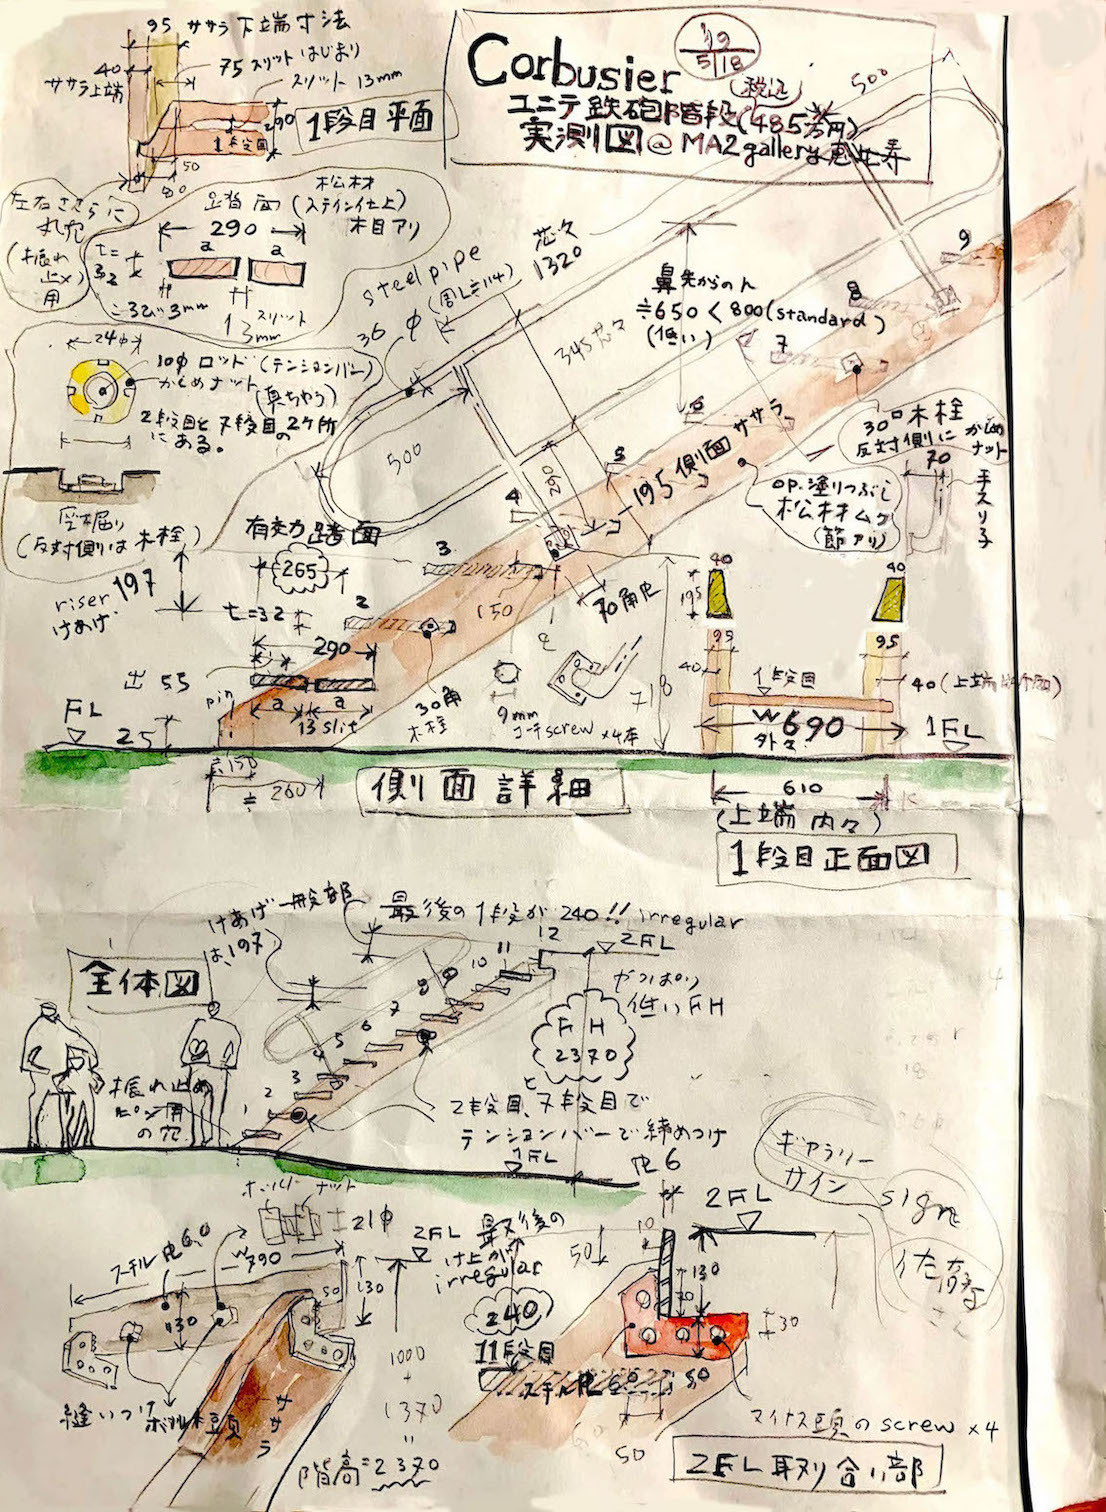 95 ササラ下端寸法
40
ササラ上端
75 スリットはじまり
スリット 13mm
290
1段目
1段目平面
50
80
Corbusier
'19
5/18
税込
ユニテ 鉄砲階段(485万円)
実測図@MA2gallery 恵比寿
500
左右ささらに
丸穴
(振れ
止メ)
用
松材
踏面 (ステイン仕上)
290 木目アリ
a a
t=
32
3mm
スリット
13mm
steel pipe
(周L≒114)
36φ
芯々
1320
345 芯々
500
260
鼻先からのH
≒650<800(standard)
(低い)
9
8
7
6
5
4
3
2
24φ
10φ ロッド(テンションバー)
かしめナット
(真ちゅう)
2段目と7段目の2ケ所
にある。
座掘り
(反対側は木栓)
30□木栓
反対側に かしめ
ナット
70
手スリ子
195 側面 ササラ
OP.塗りつぶし
松材ムク
(節アリ)
有効踏面
265
riser 197
けあげ
t=32
290
出 55
pin
a a
13 slit
150
70角PL
30角
木栓
9mm
コーチscrew ×4本
718
FL
25
≒150
≒ 260
側面詳細
40
195
40
95
95
40
1段目
40(上端
W690
外々
1FL
610
(上端 内々)
1段目正面図
けあげ一般部
は、197
最後の1段が240!! irregular
全体図
2 3 5 6 7 8 9 10 11 12
2FL
やっぱり
低いFH
FH
2370
振れ止め
ピン用
の穴
2段目と、7段目で
テンションバーで締めつけ
1FL
PL6
ギャラリー
サイン
sign
佐藤
さん
ボルト ナット
21φ
スチールPL6.0
W790
130
50
130
2FL
最後の
け上が
irregular
240
11段目
1000
+
1370
=
階高=2370
縫いつけ ボルト頭
ササラ
2FL
10
50
130
70
30
50
スチールPL6
50
マイナス頭のscrew×4
2FL取り合い部